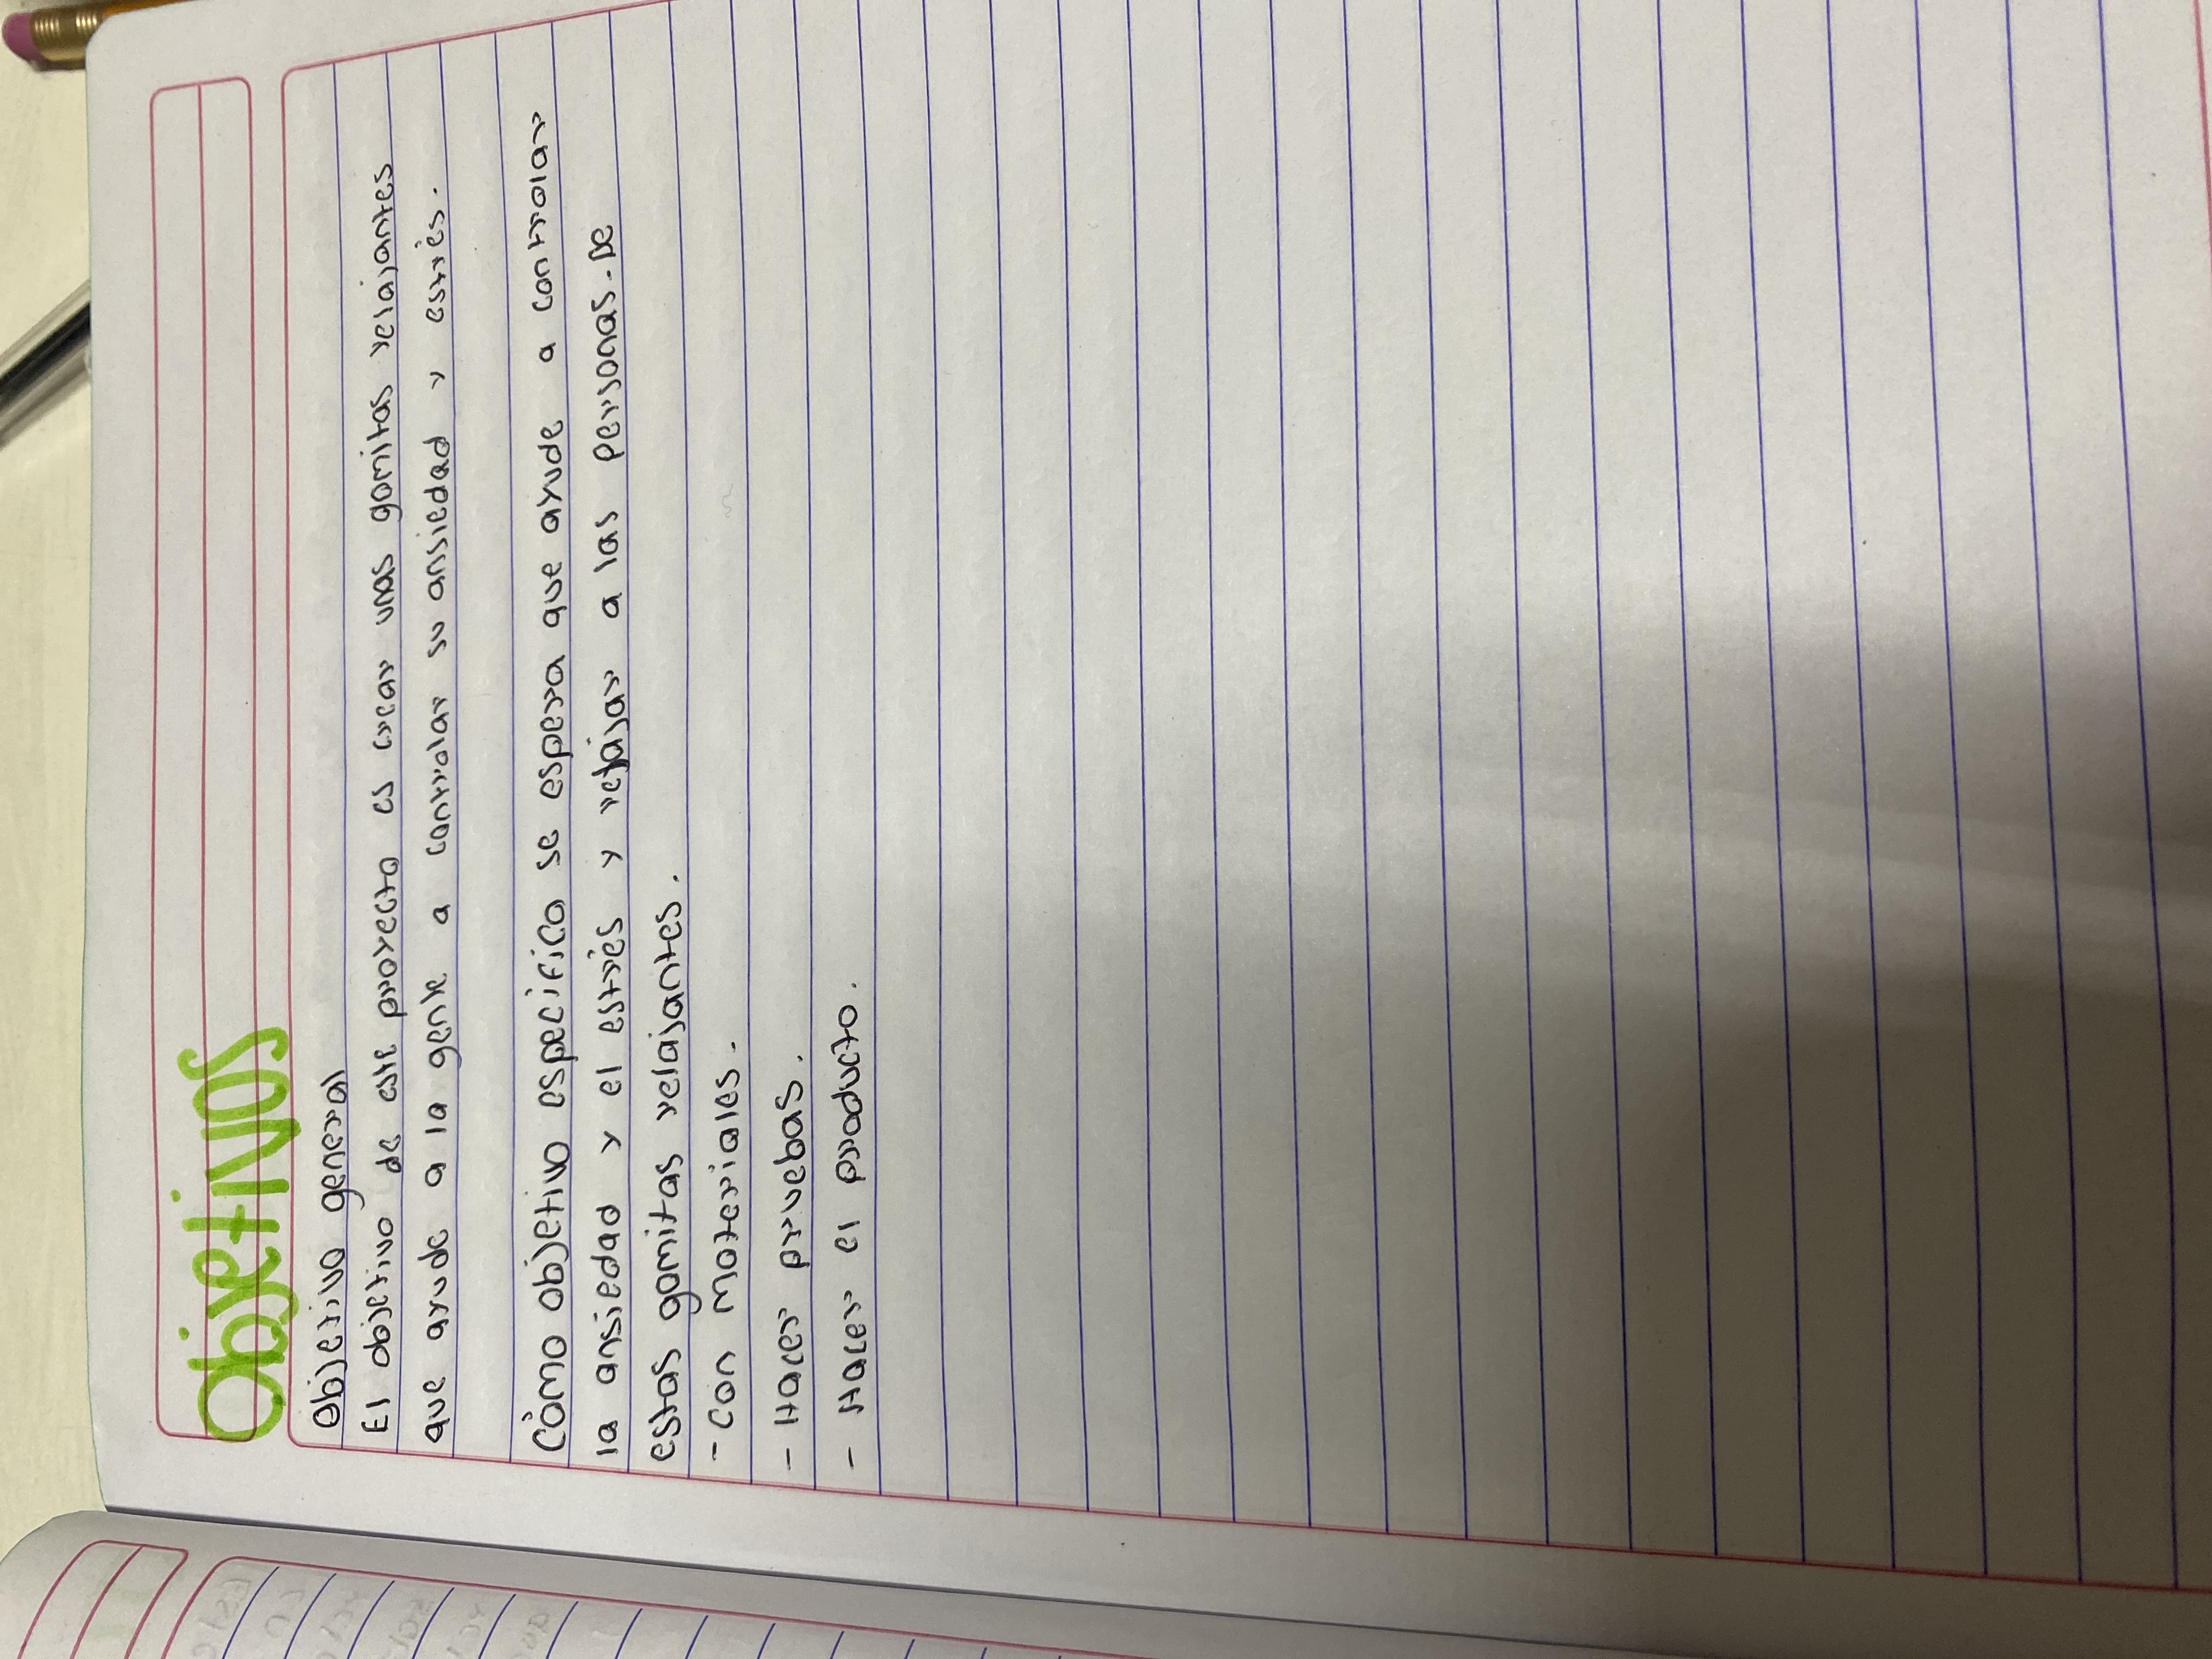 Objetivos
Objetivo general
El objetivo de este proyecto es crear unas gomitas relajantes
que ayude a la gente a controlar su ansiedad y estrés.
Como objetivo especifico se espera que ayude a controlar
la ansiedad y el estrés y relajar a las personas. De
estas gomitas relajantes.
- Con materiales.
- Hacer pruebas.
- Hacer el producto.